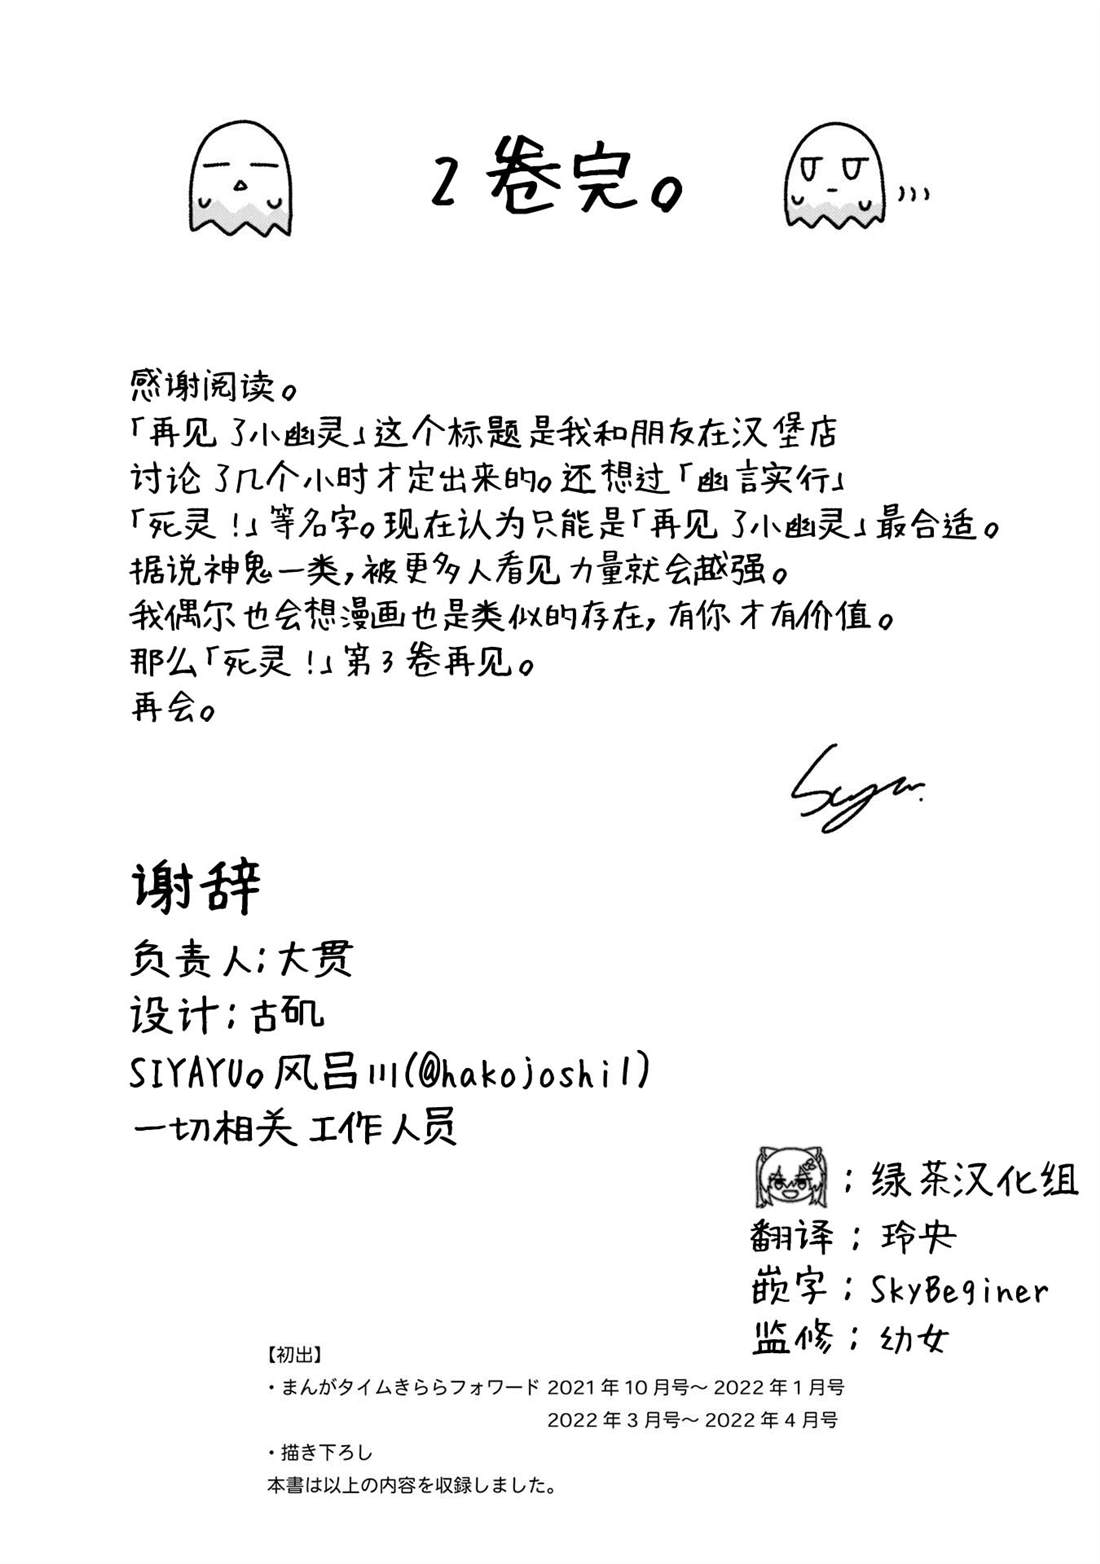 2卷完。
感谢阅读。
「再见了小幽灵」这个标题是我和朋友在汉堡店
讨论了几个小时才定出来的。还想过「幽言实行」
「死灵!」等名字。现在认为只能是「再见了小幽灵」最合适。
据说神鬼一类,被更多人看见力量就会越强。
我偶尔也会想漫画也是类似的存在,有你才有价值。
那么「死灵!」第3卷再见。
再会。
谢辞
负责人;大贯
设计;古矶
SIYAYU。风吕川(@hakojoshi1)
一切相关工作人员
:绿茶汉化组
翻译;玲央
嵌字;SkyBeginer
监修;幼女
【初出】
・まんがタイムきららフォワード 2021年10月号〜2022年1月号
2022年3月号〜2022年4月号
・描き下ろし
本書は以上の内容を収録しました。